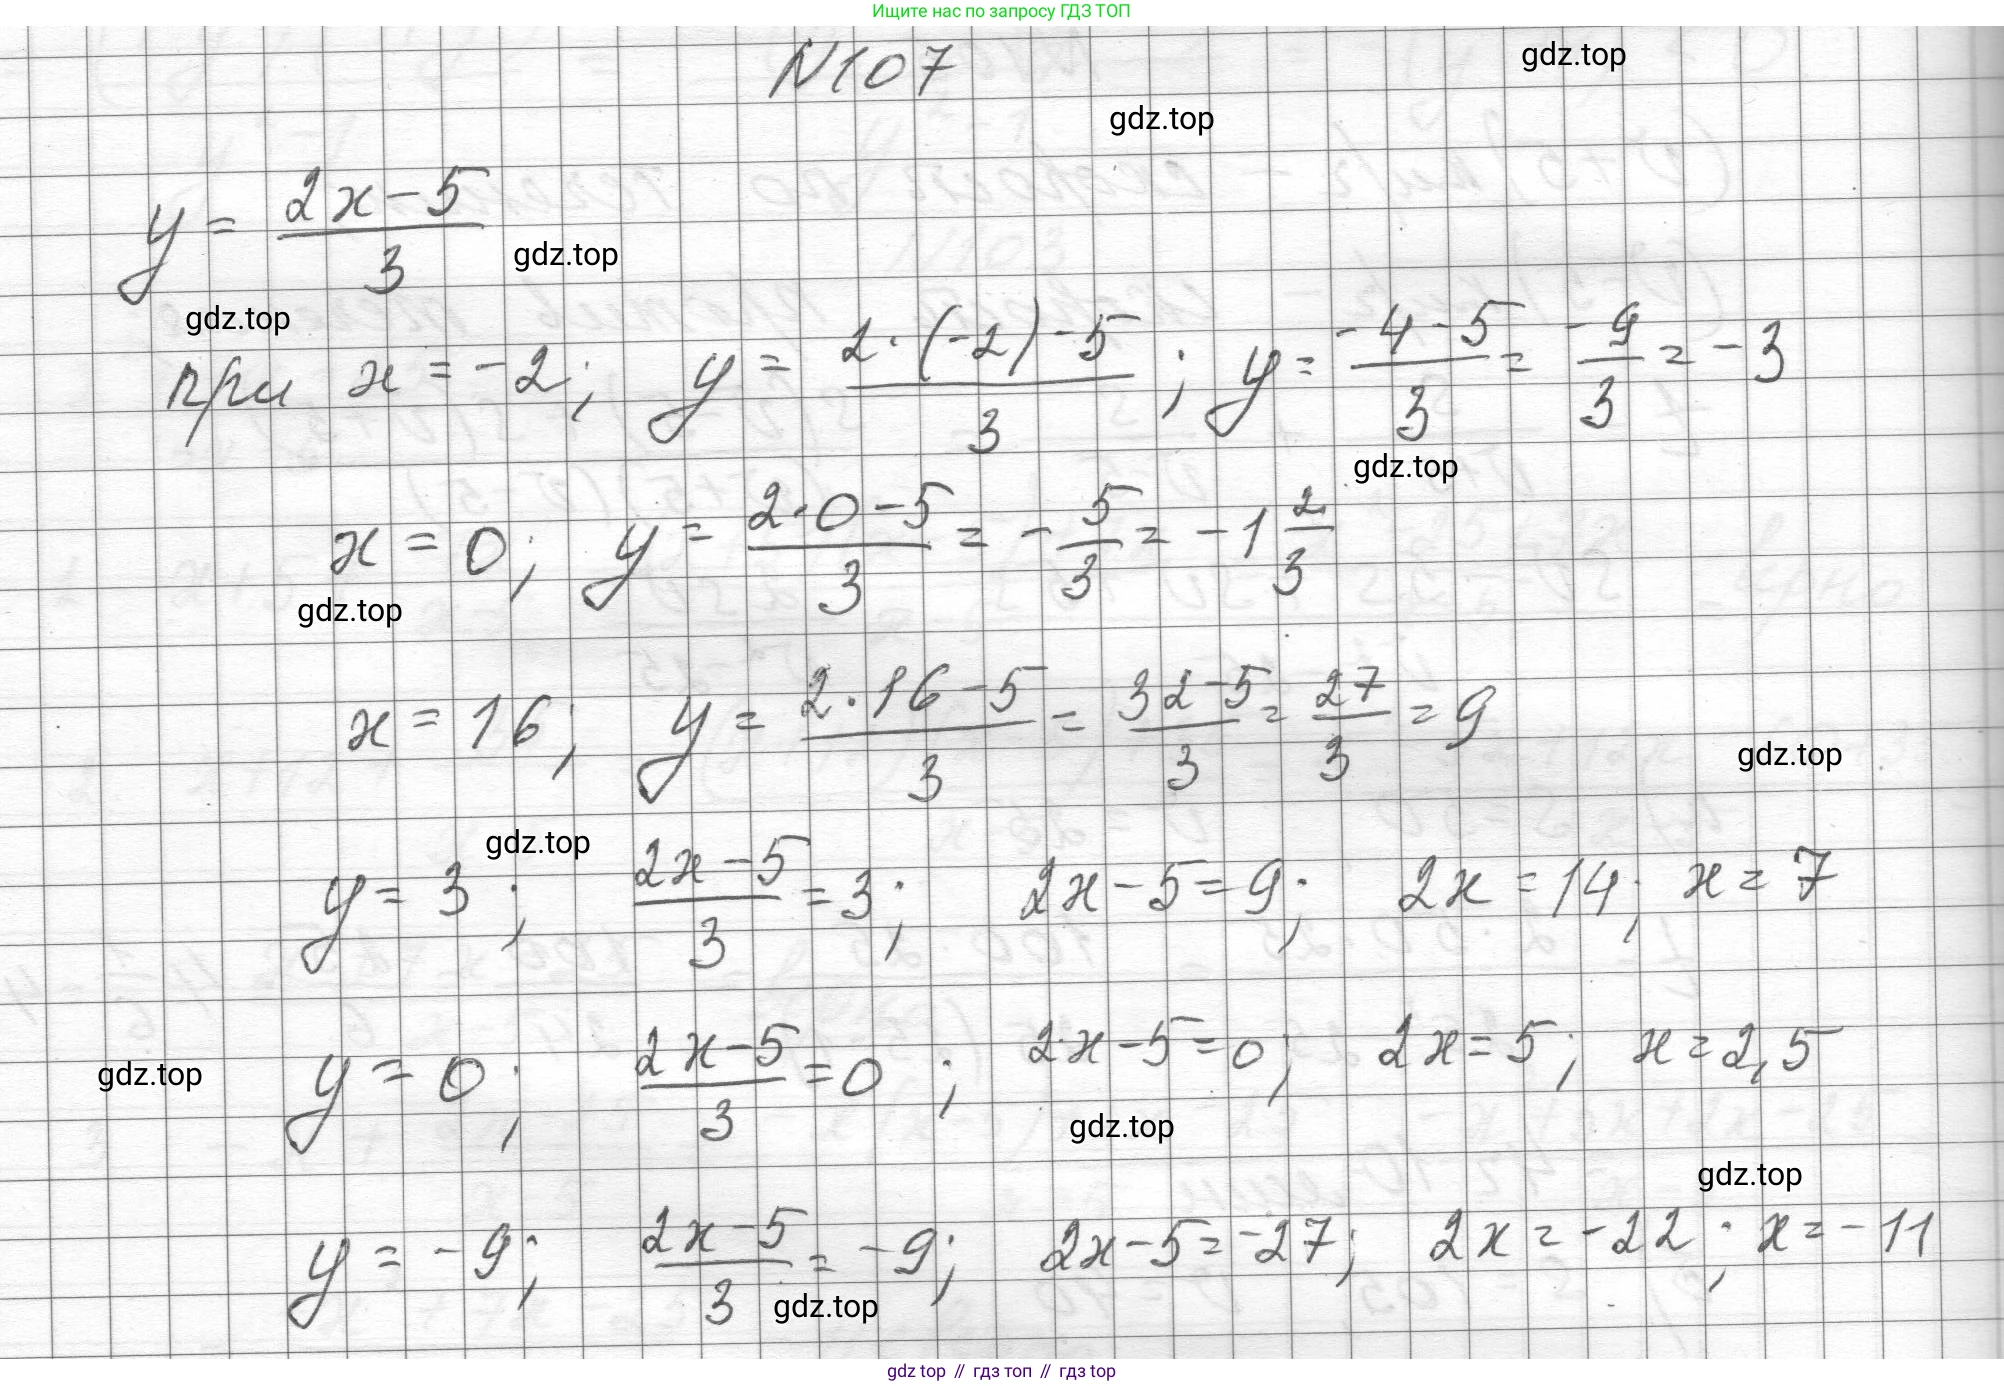 Ищите нас по запросу ГДЗ ТОП
N107
gdz.top
gdz.top
y = (2x - 5)/3
gdz.top
gdz.top
при x = -2; y = (2·(-2) - 5)/3; y = (-4 - 5)/3 = -9/3 = -3
gdz.top
x = 0; y = (2·0 - 5)/3 = -5/3 = -1 2/3
gdz.top
x = 16; y = (2·16 - 5)/3 = (32 - 5)/3 = 27/3 = 9
gdz.top
gdz.top
y = 3; (2x - 5)/3 = 3; 2x - 5 = 9; 2x = 14; x = 7
y = 0; (2x - 5)/3 = 0; 2x - 5 = 0; 2x = 5; x = 2,5
gdz.top
gdz.top
gdz.top
y = -9; (2x - 5)/3 = -9; 2x - 5 = -27; 2x = -22; x = -11
gdz.top
gdz top // гдз топ // гдз top